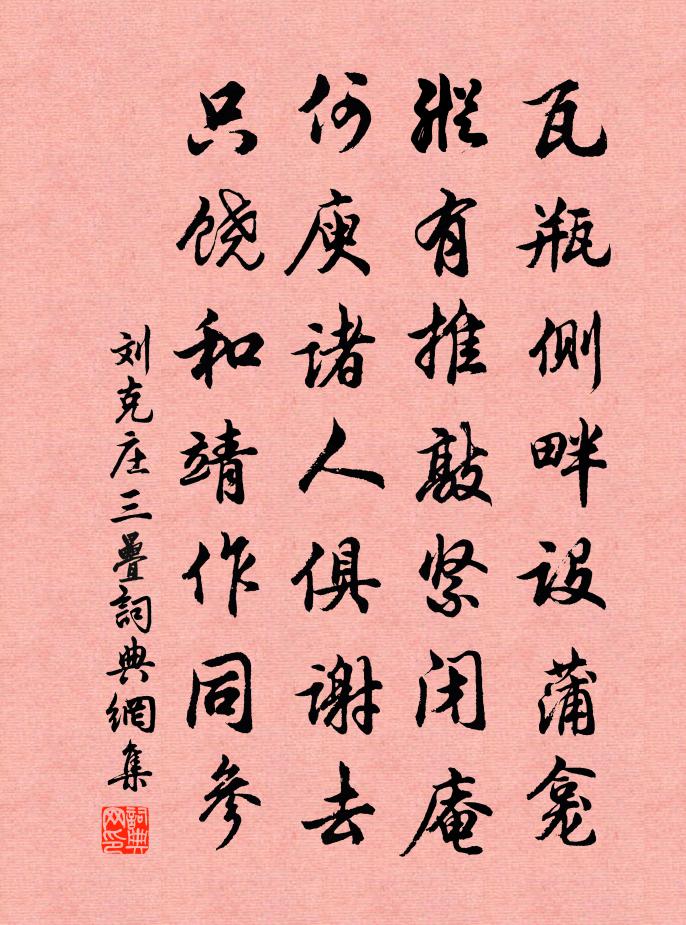 瓦瓶侧畔设蒲龛
縱有推敲紧闭庵
何庾诸人俱谢去
只饶和靖作同參
刘克庄三疊詞典網集
詞典网印